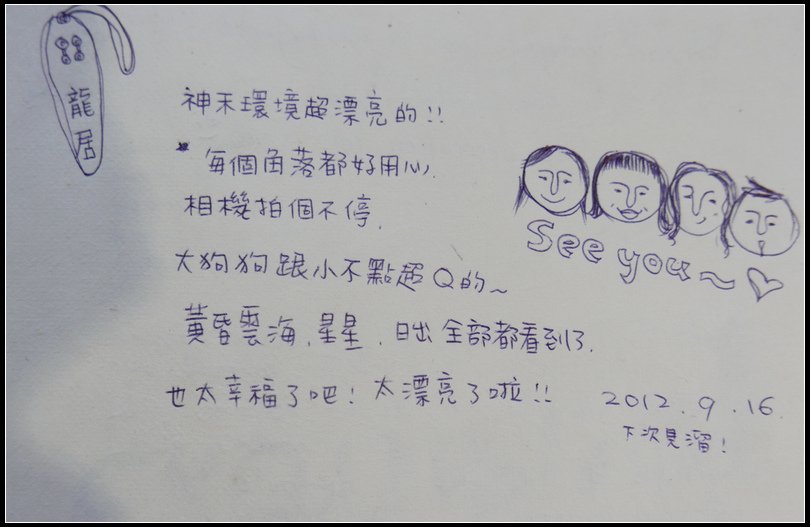 龍居
神禾環境超漂亮的!!
每個角落都好用心,
相機拍個不停,
大狗狗跟小不點超Q的~
黃昏雲海、星星、日出全部都看到了.
也太幸福了吧! 太漂亮了啦!!
See you~
2012.9.16.
下次見溜!